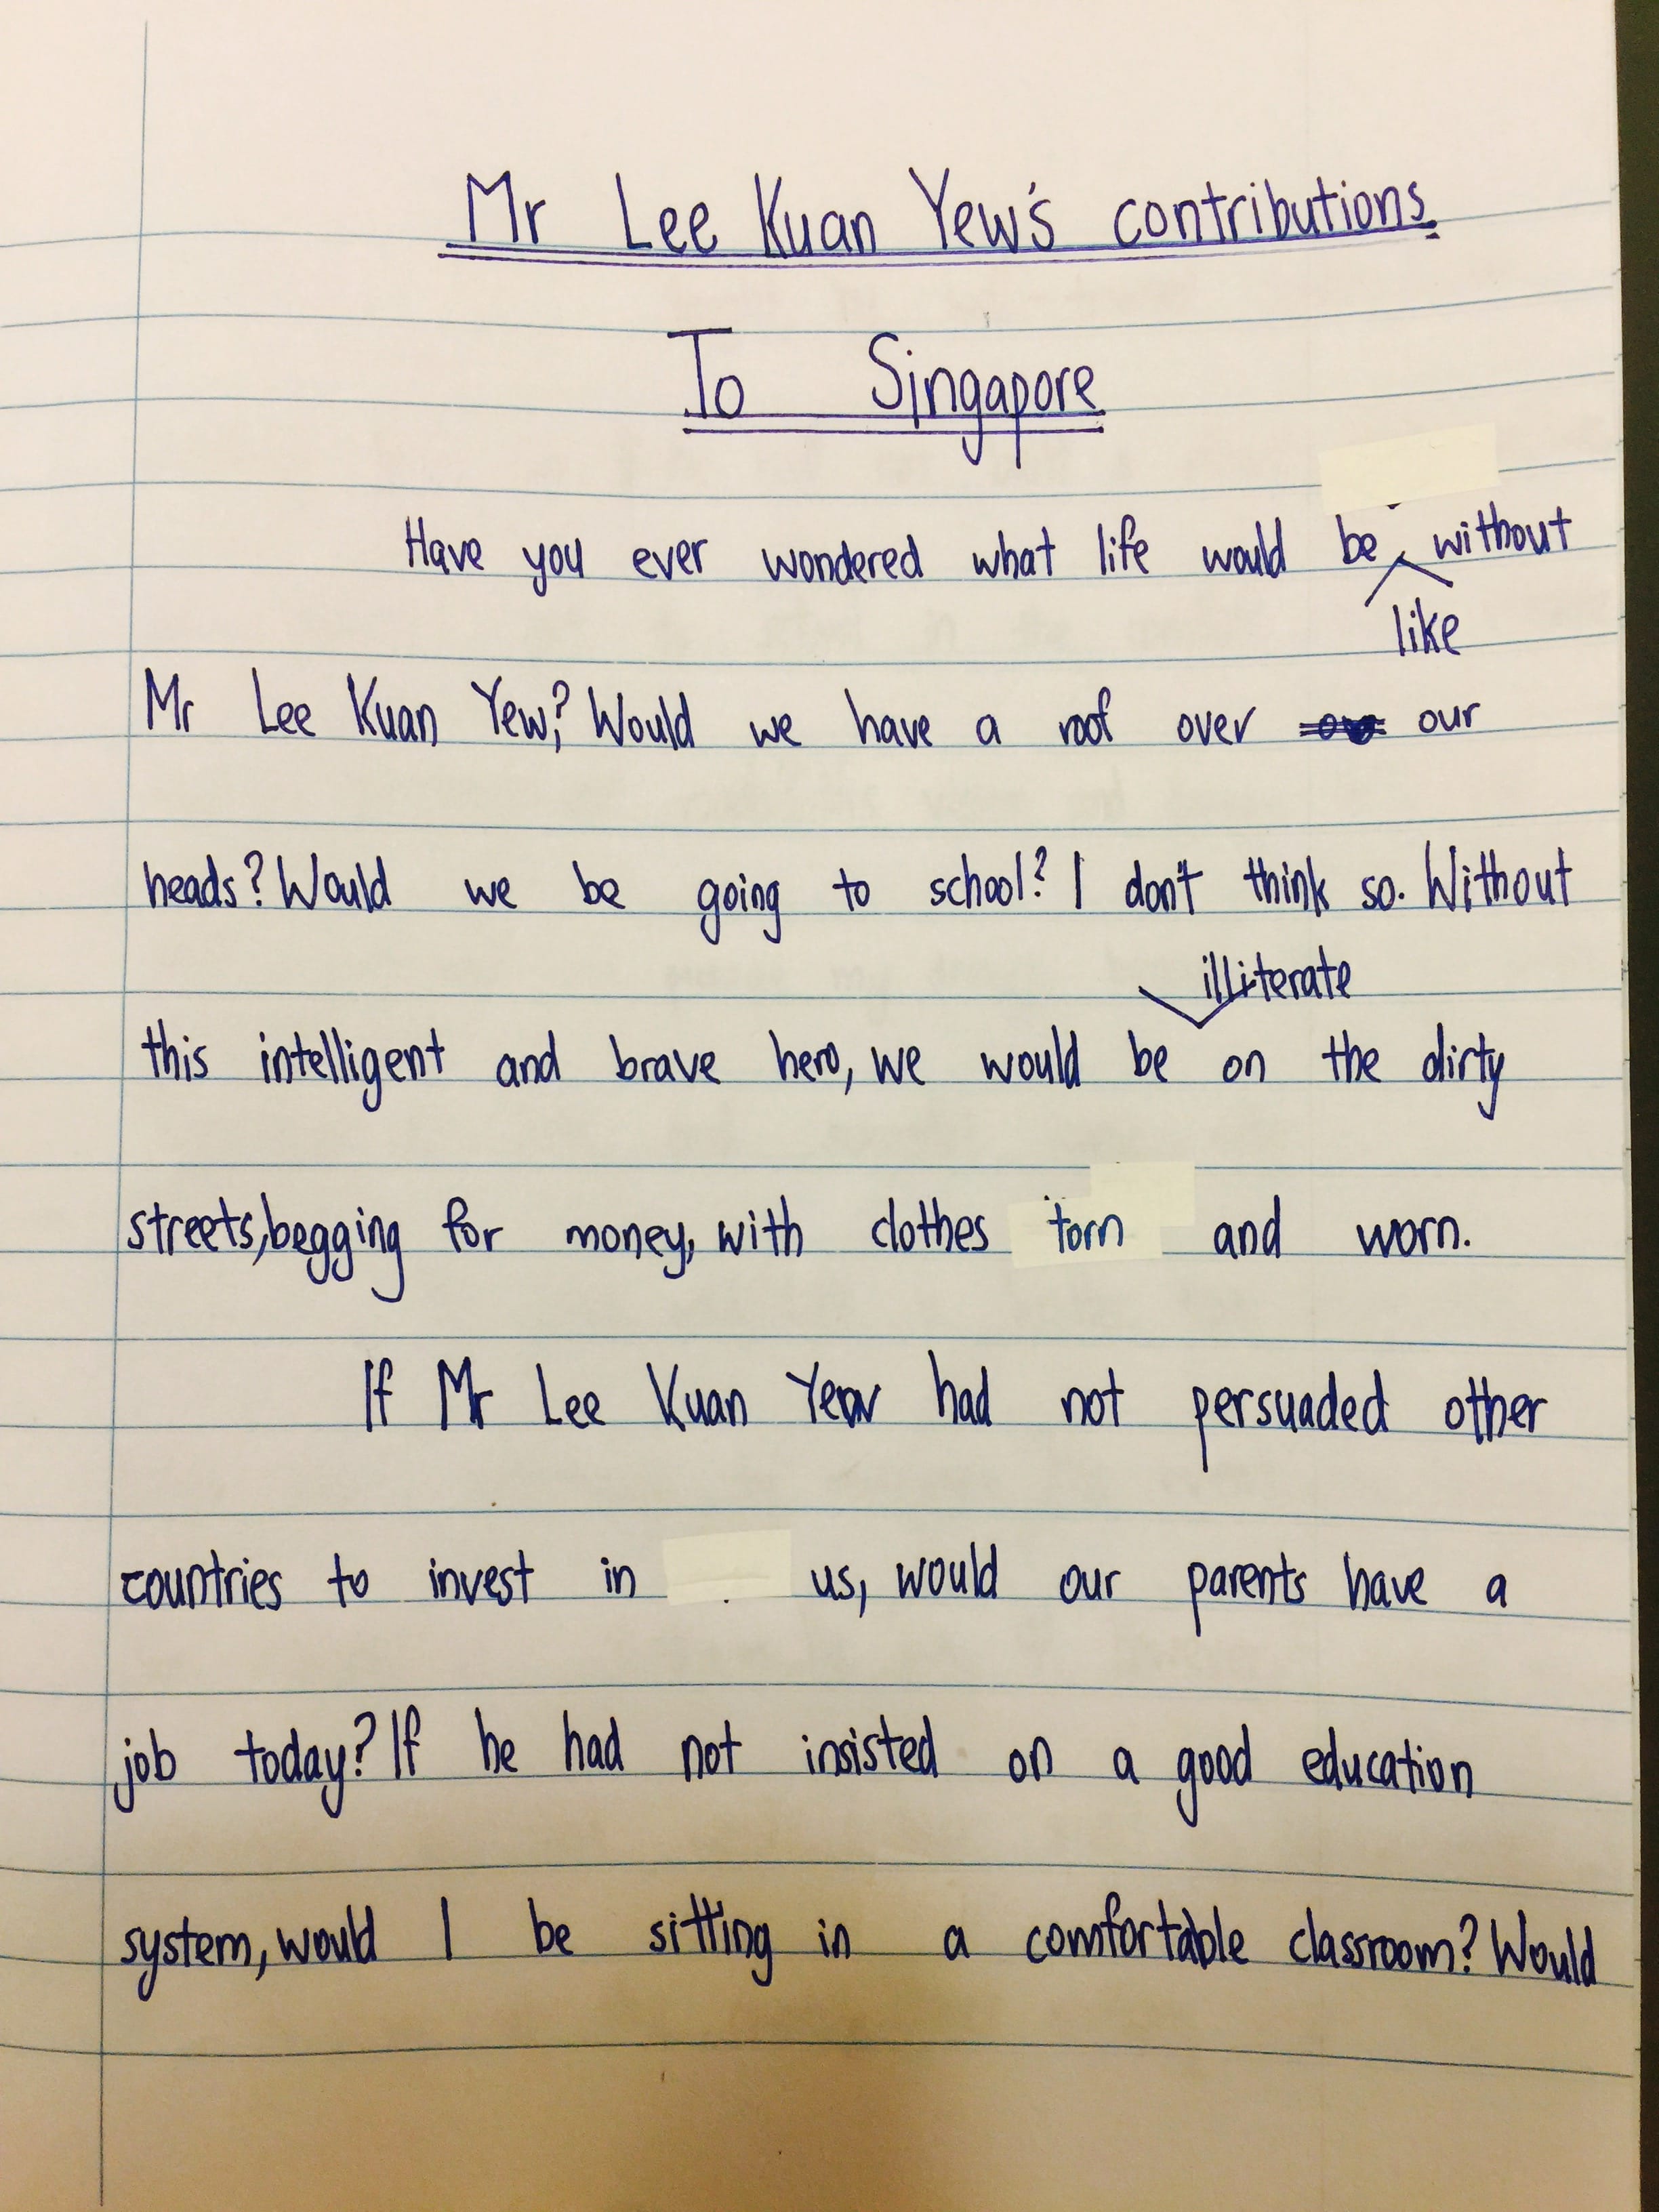 Mr Lee Kuan Yew's contributions
To Singapore
Have you ever wondered what life would be like without
Mr Lee Kuan Yew? Would we have a roof over our
heads? Would we be going to school? I don't think so. Without
this intelligent and brave hero, we would be illiterate on the dirty
streets, begging for money, with clothes torn and worn.
If Mr Lee Kuan Yew had not persuaded other
countries to invest in us, would our parents have a
job today? If he had not insisted on a good education
system, would I be sitting in a comfortable classroom? Would